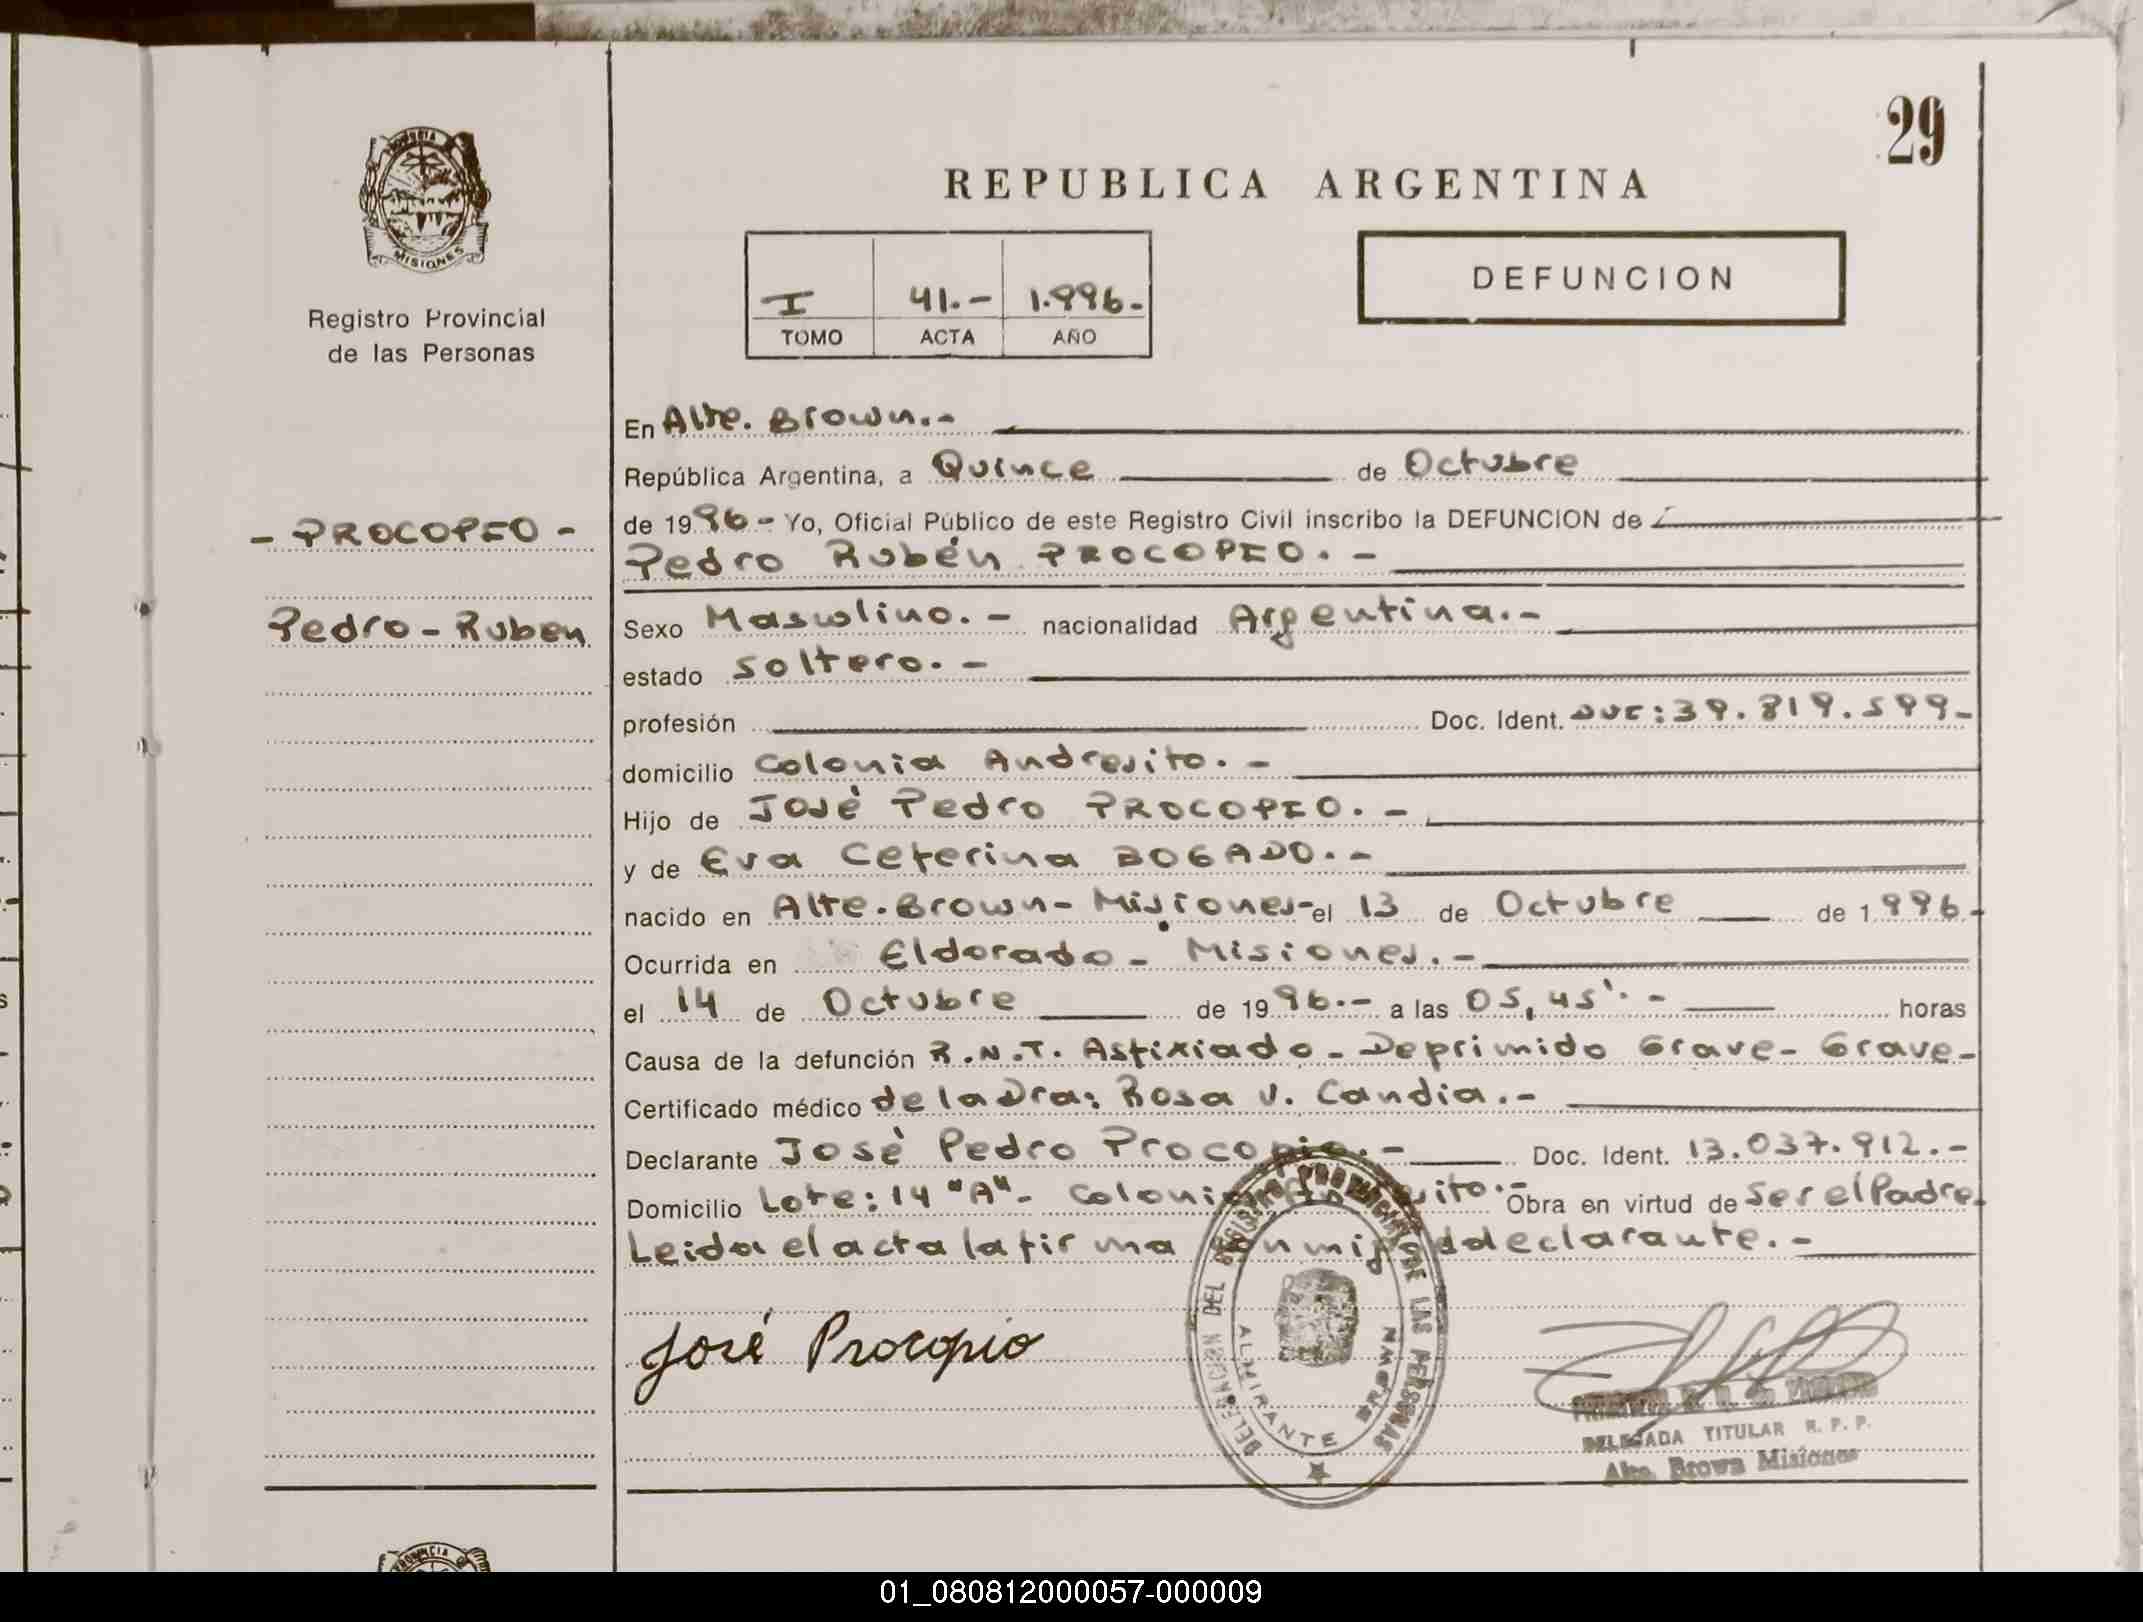 29
PROVINCIA
MISIONES
Registro Provincial
de las Personas
REPUBLICA ARGENTINA
I 41.- 1.996.-
TOMO ACTA AÑO
DEFUNCION
En Alte. Brown.-
República Argentina, a Quince de Octubre
de 1996- Yo, Oficial Público de este Registro Civil inscribo la DEFUNCION de
- PROCOPIO -
Pedro Rubén PROCOPIO.-
Pedro-Ruben
Sexo Masculino.- nacionalidad Argentina.-
estado Soltero.-
profesión Doc. Ident. DUI: 39.819.599-
domicilio Colonia Andresito.-
Hijo de José Pedro PROCOPIO.-
y de Eva Ceferina BOGADO.-
nacido en Alte. Brown- Misiones- el 13 de Octubre de 1.996.-
Ocurrida en Eldorado - Misiones.-
el 14 de Octubre de 1996.- a las 05,45'.- horas
Causa de la defunción R.N.T. Asfixiado - Deprimido Grave- Grave-
Certificado médico de la Dra: Rosa V. Candia.-
Declarante José Pedro Procopio.- Doc. Ident. 13.037.912.-
Domicilio Lote: 14 "A"- Colonia Andresito.- Obra en virtud de Ser el Padre.
Leida el acta la firma conmigo el declarante.-
José Procopio
DELEGACION DEL REGISTRO PROVINCIAL DE LAS PERSONAS
ALMIRANTE BROWN
DELEGADA TITULAR R. P. P.
Alte. Brown Misiones
PROVINCIA
01_080812000057-000009